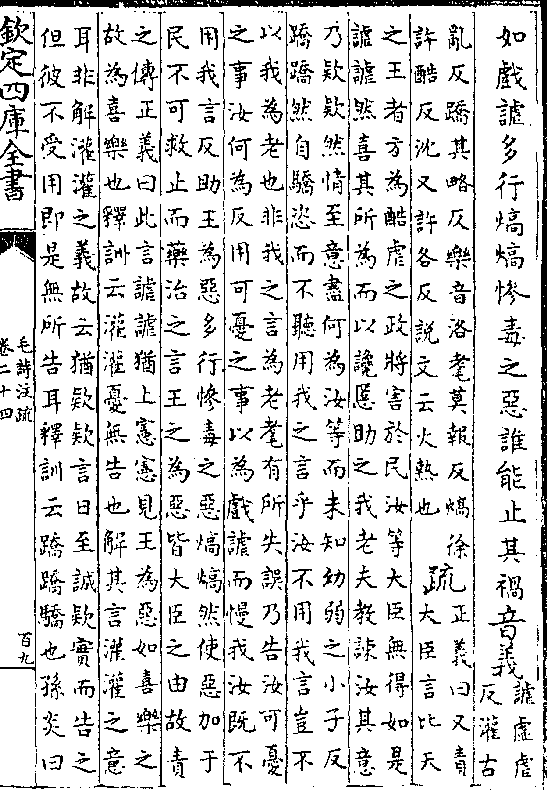 如戲謔多行熇熇慘毒之惡誰能止其禍音義
謔虛虐
反灌古
亂反蹻其略反樂音洛耄莫報反熇徐
許酷反沈又許各反說文云火熱也
疏
正義曰又責
大臣言比天
之王者方為酷虐之政將害於民汝等大臣無得如是
謔謔然喜其所為而以讒慝助之我老夫教諫汝其意
乃欵欵然情至意盡何為汝等而未知幼弱之小子反
蹻蹻然自驕恣而不聽用我之言乎汝不用我言豈不
以我為老也非我之言為老耄有所失誤乃告汝可憂
之事汝何為反用可憂之事以為戲謔而慢我汝既不
用我言反助王為惡多行慘毒之惡熇熇然使惡加于
民不可救止而藥治之言王之為惡皆大臣之由故責
之傳正義曰此言謔謔猶上憲憲見王為惡如喜樂之
故為喜樂也釋訓云灌灌憂無告也解其言灌灌之意
耳非解灌灌之義故云猶欵欵言曰至誠欵實而告之
但彼不受用即是無所告耳釋訓云蹻蹻驕也孫炎曰
欽定四庫全書
毛詩注疏
卷二十四
百九